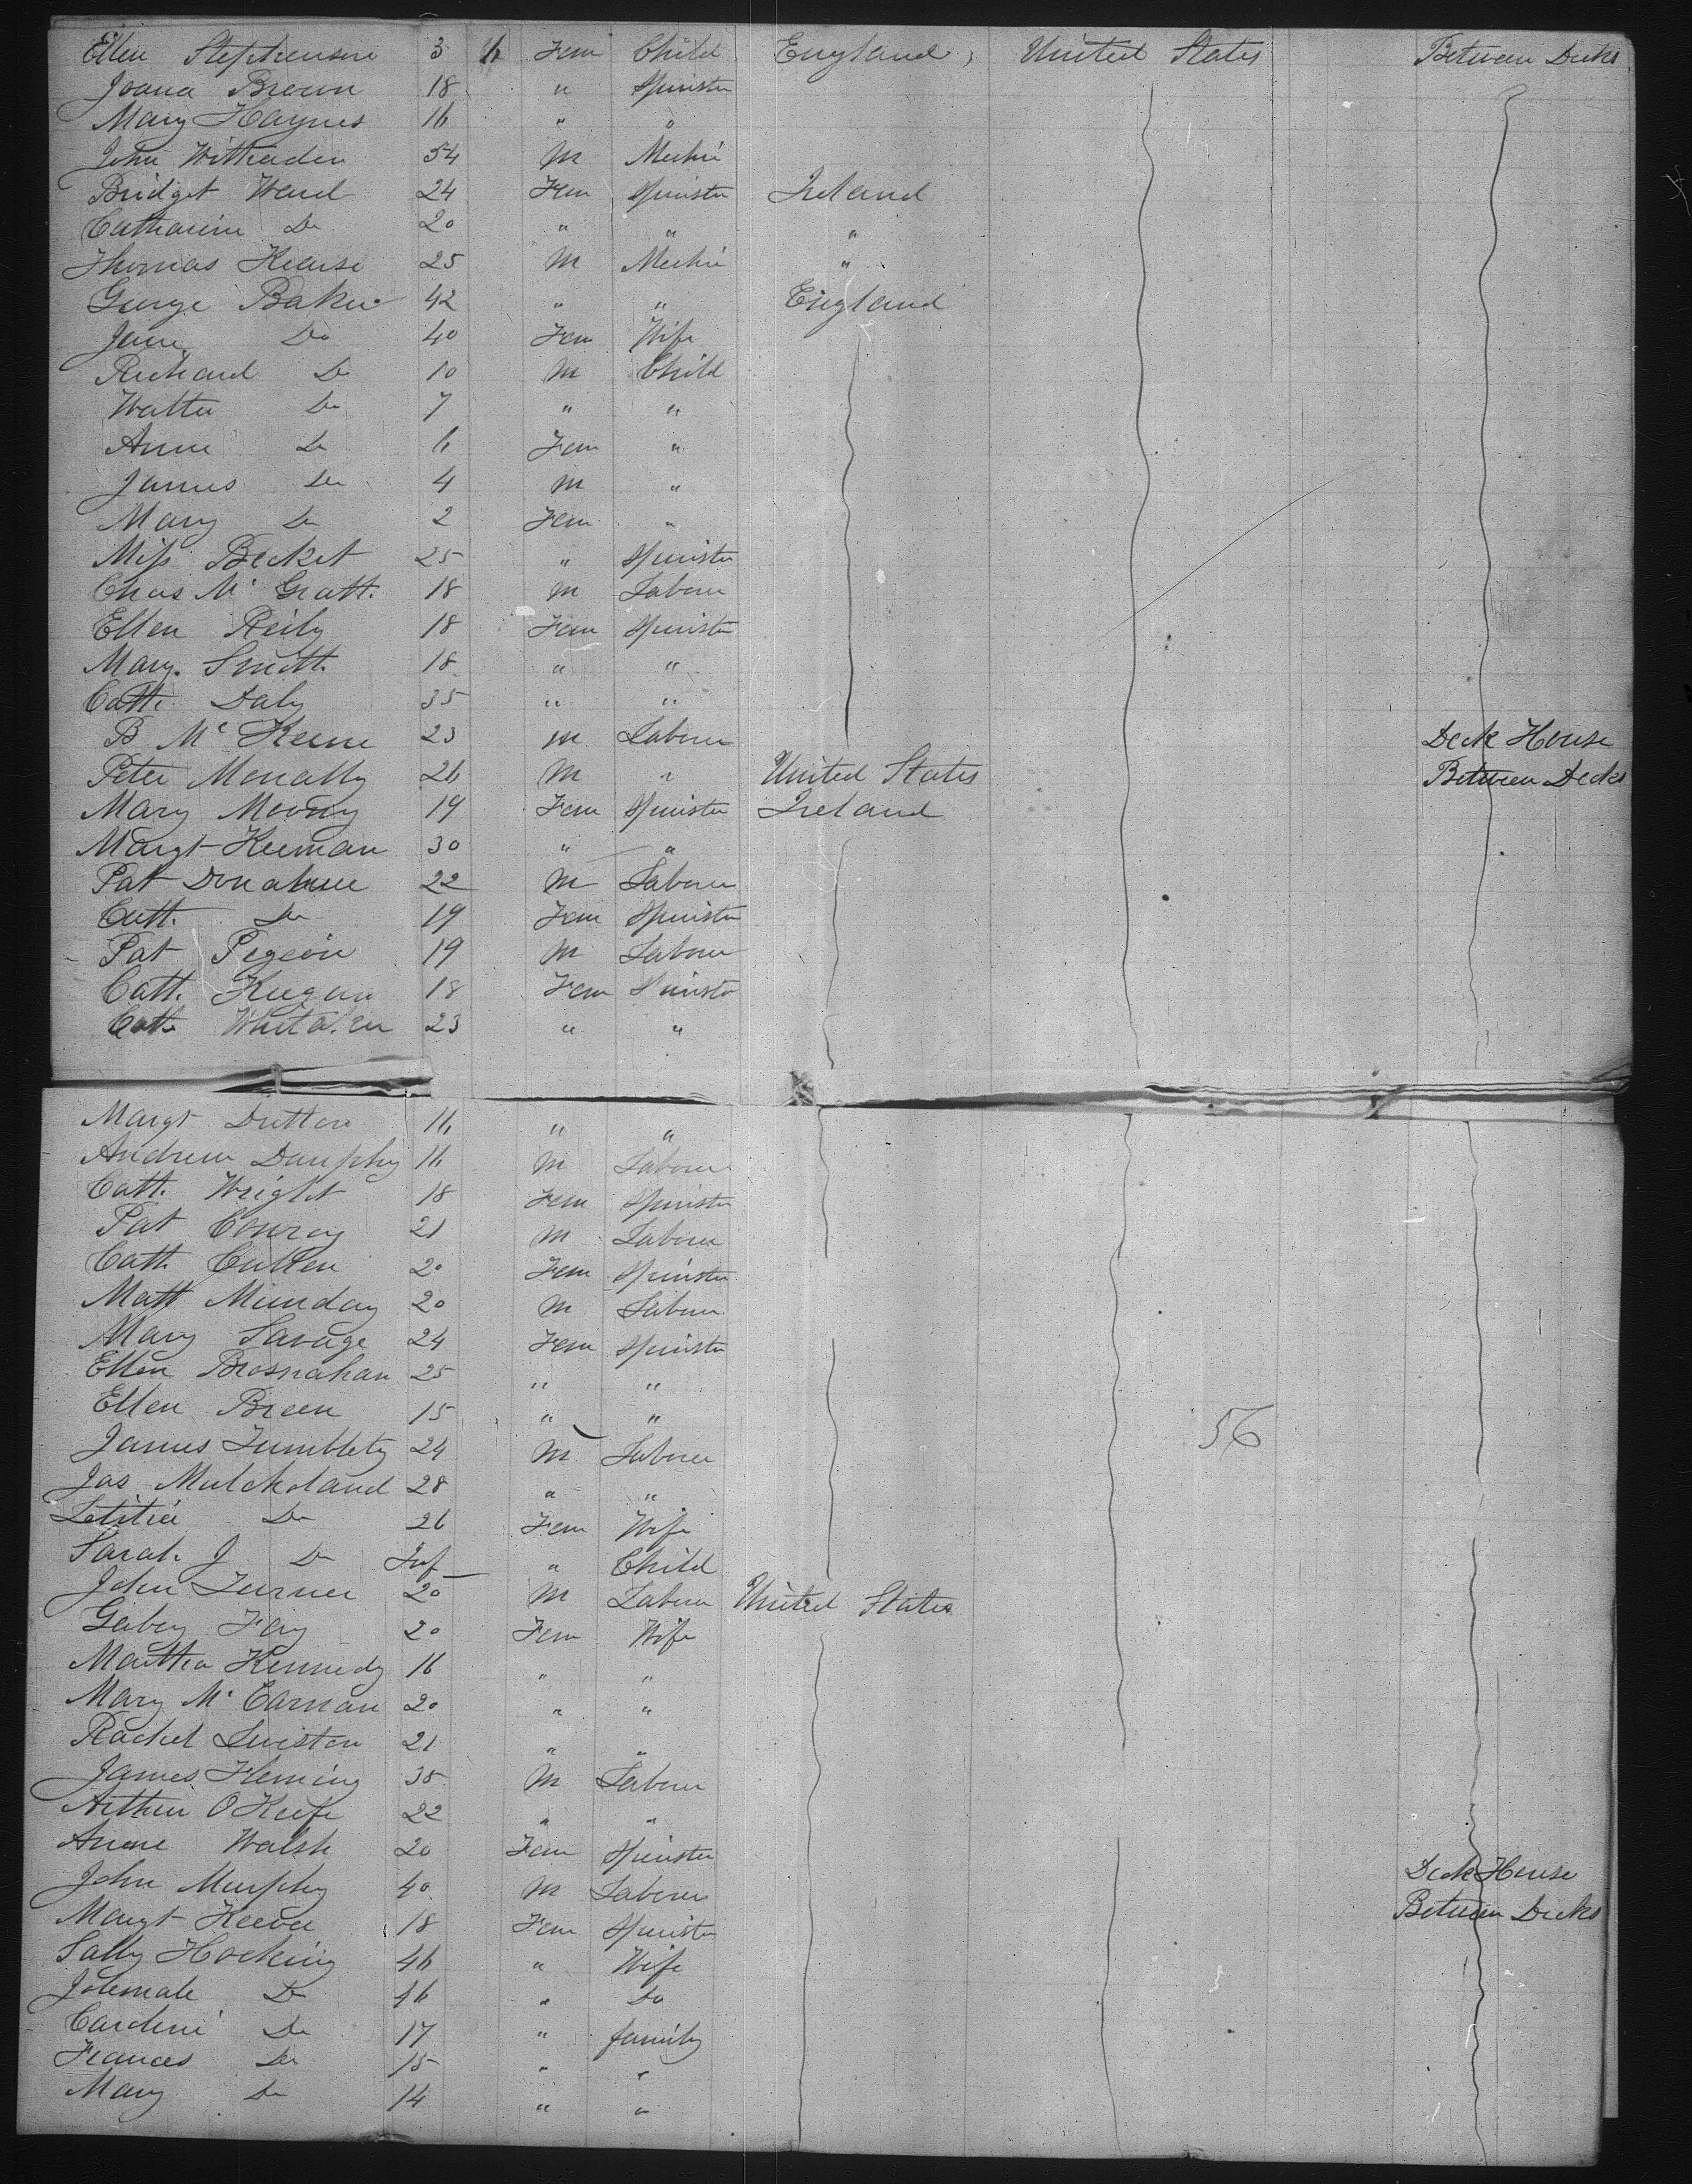 Ellen Stephenson 3 Fem Child England, United States Between Decks
Joana Brown 18 " Spinster
Mary Haynes 16 " "
John 54 M Mechc
Bridget Ward 24 Fem Spinster Ireland
Catharine Do 20 " " "
Thomas Kearse 25 M Mechc "
George Baker 42 " " England
Jane Do 40 Fem Wife
Richard Do 10 M Child
Walter Do 7 " "
Anne Do 6 Fem "
James Do 4 M "
Mary Do 2 Fem "
Miss Becket 25 " Spinster
Chas Mc Grath 18 M Laborer
Ellen Reily 18 Fem Spinster
Mary Smith 18 " "
Cath Daly 35 " "
B Mc Keene 23 M Laborer Deck House
Peter Monally 26 M " United States Between Decks
Mary Moony 19 Fem Spinster Ireland
Margt Keernan 30 " "
Pat Donahue 22 M Laborer
Cath. Do 19 Fem Spinster
Pat Pigeon 19 M Laborer
Cath. Keegan 18 Fem Spinster
Cath 23 " "
Margt Dutton 16 " "
Andrew Dunphy 16 M Laborer
Cath. Wright 18 Fem Spinster
Pat Conroy 21 M Laborer
Cath Cullen 20 Fem Spinster
Matt Munday 20 M Laborer
Mary Savage 24 Fem Spinster
Ellen Brosnahan 25 " "
Ellen Breen 15 " " 56
James Tumblety 24 M Laborer
Jas Mulcholand 28 " "
Letitia Do 26 Fem Wife
Sarah J Do Inf " Child
John Turner 20 M Laborer United States
Gabey Fay 20 Fem Wife
Martha Kennedy 16 " "
Mary Mc Carnan 20 " "
Rachel Lewiston 21 " "
James Fleming 35 M Laborer
Arthur O Keefe 22 " "
Anne Walsh 20 Fem Spinster
John Murphy 40 M Laborer Deck House
Margt Keever 18 Fem Spinster Between Decks
Sally Hocking 46 " Wife
Do 16 " Do
Do 17 " family
Frances Do 15 " "
Mary Do 14 " "